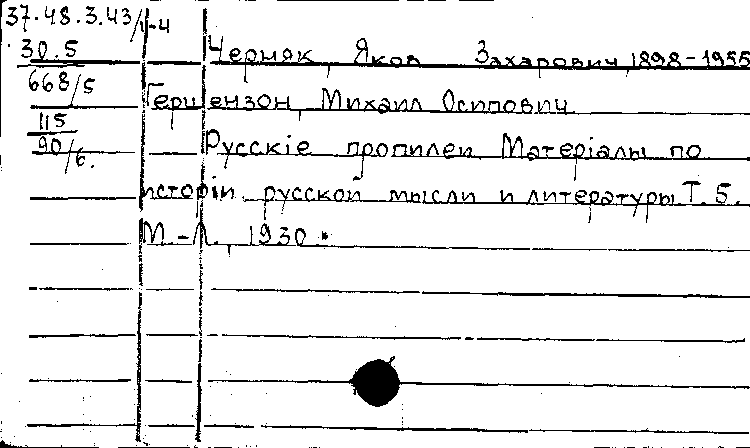 37.48.3.43/1-4
30.5
Черняк, Яков Захарович, 1898-1955
668/5
Гершензон, Михаил Осипович
115
Русскіе пропилеи. Матеріалы по
90/6.
исторіи русской мысли и литературы. Т. 5.
М.-Л., 1930.